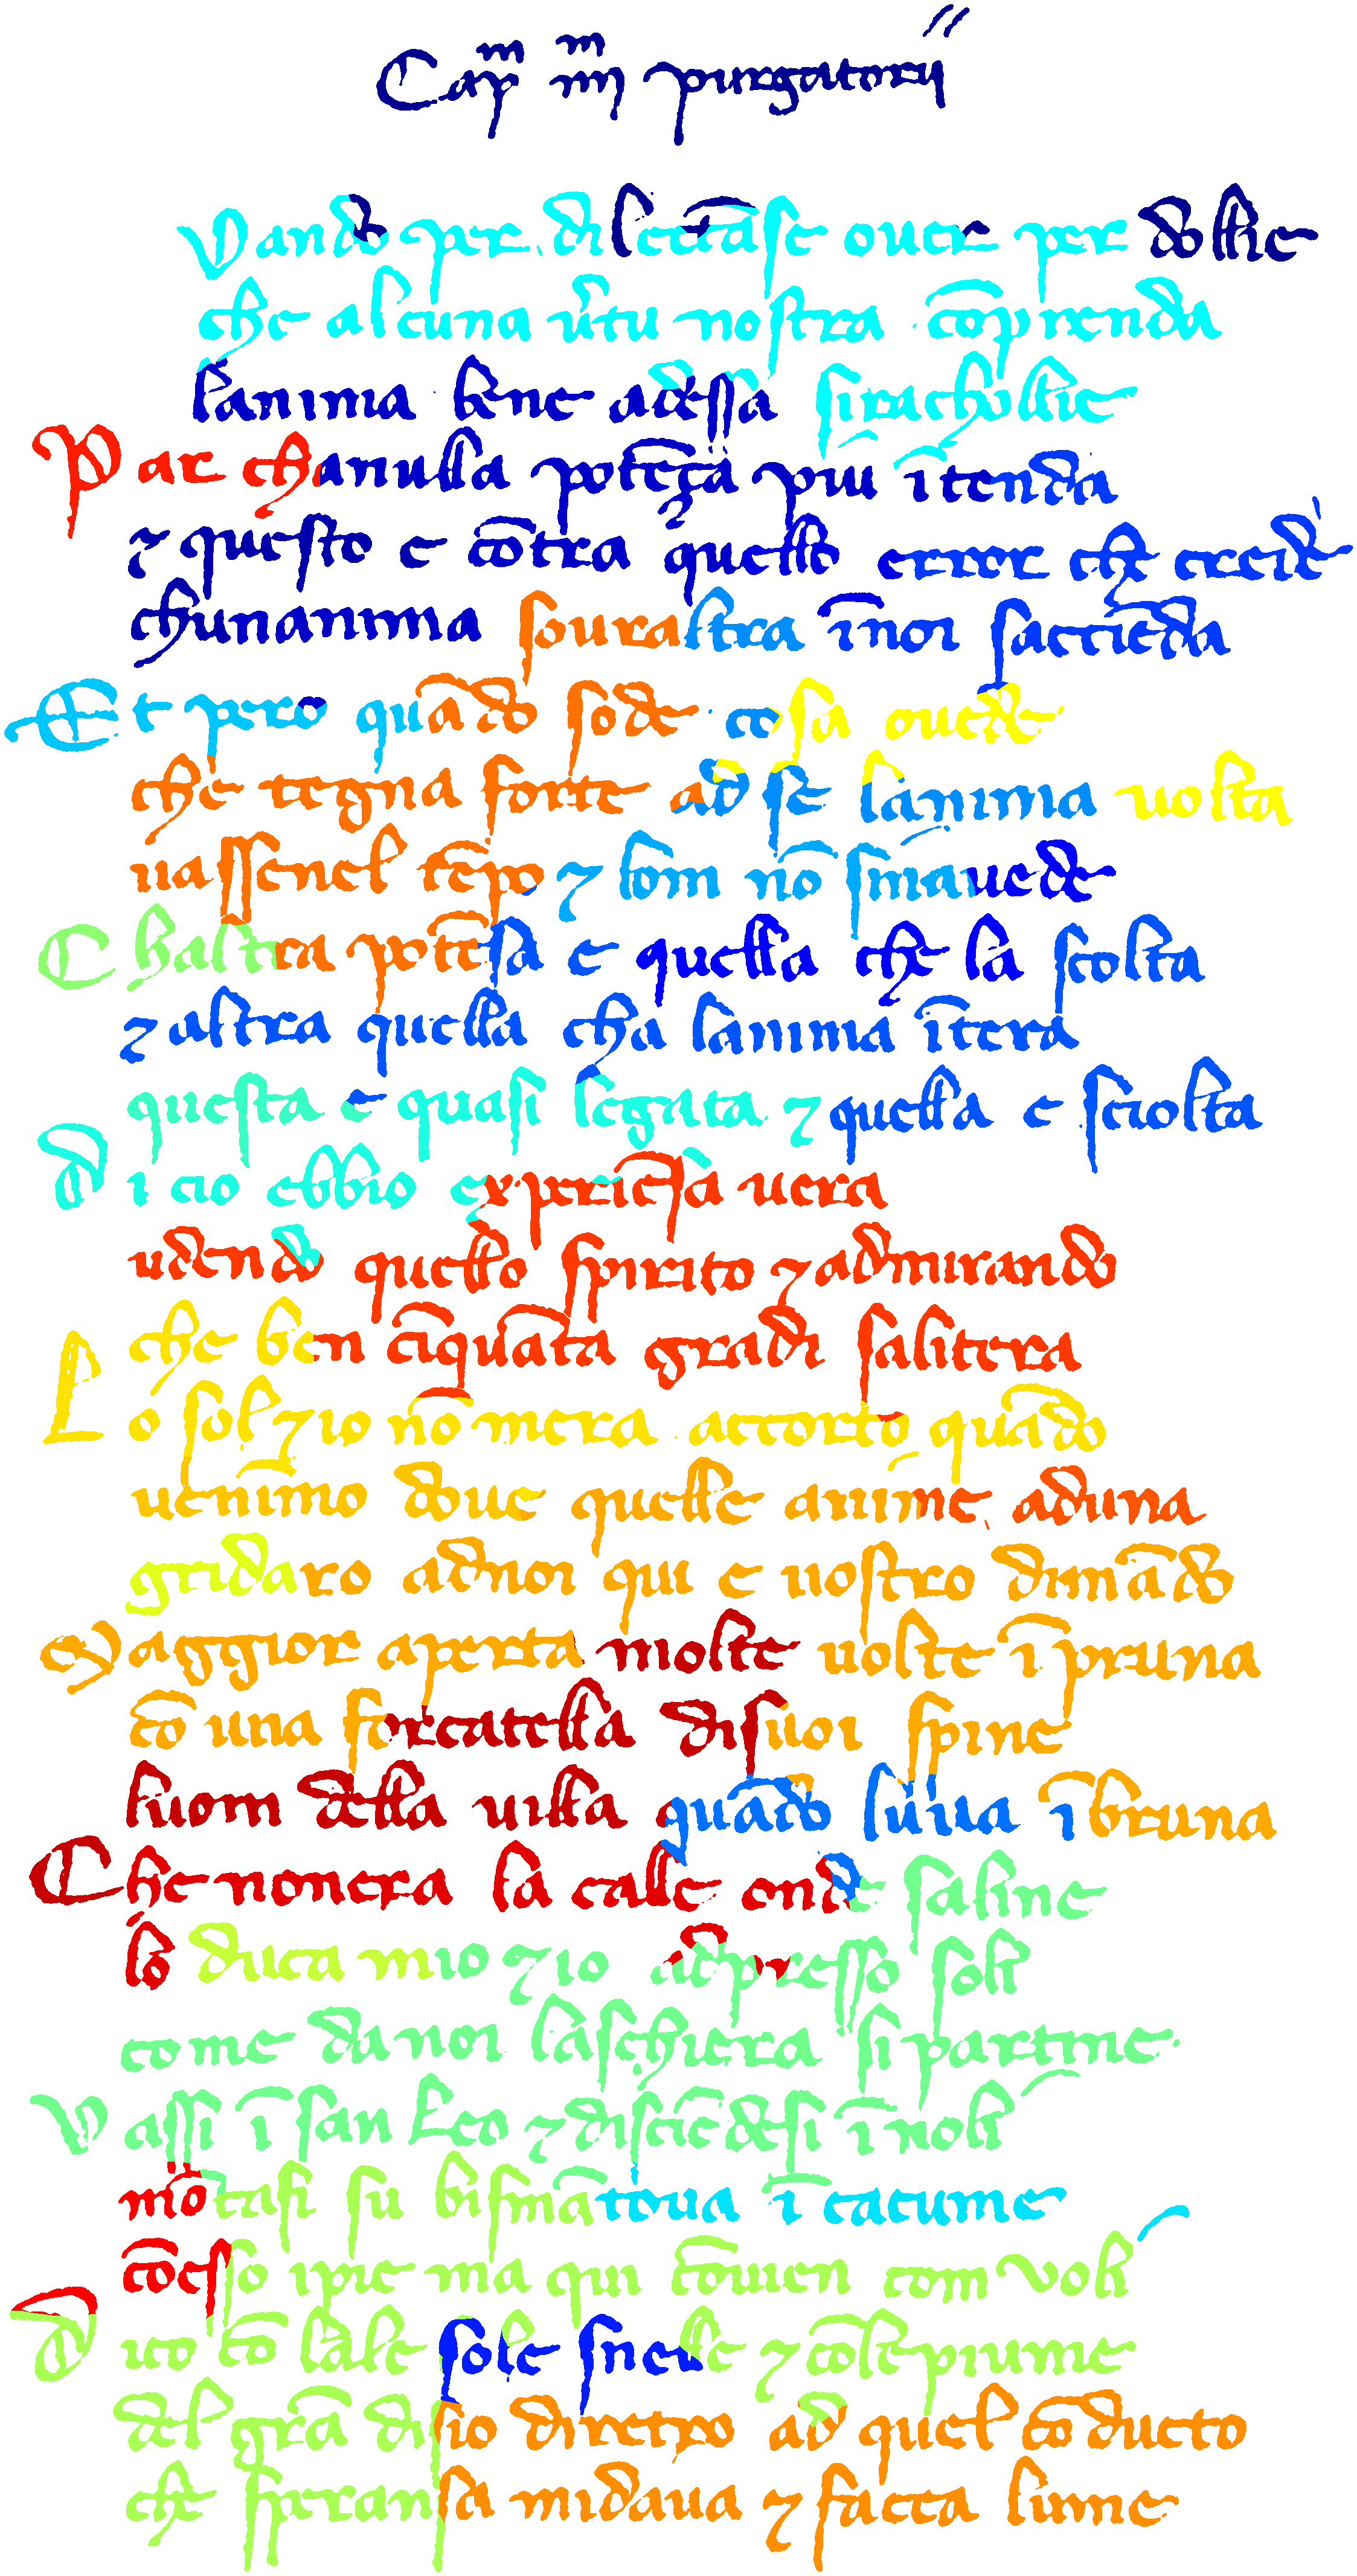 Cap̅ m iiij m purgatorij
Vando per dilectāse ouer per dollie
che alcuna v̄tu nostra cōprenda
lanima bene adessa sirachollie
Par chanulla potēça piu ītenda
⁊ questo e cōtra quello error che crede
chunanima souraltra īnoi saccēda
Et pero quādo sode cosa ouede
che tegna forte ad se lanima uolta
uassenel tēpo ⁊ lom nō smauede
Chaltra potēsa e quella che la scolta
⁊ altra quella cha lanima ītera
questa e quasi legata ⁊ quella e sciolta
di cio ebbio experiēsa uera
udendo quello spirito ⁊ admirando
che ben cīquāta gradi salitera
Lo sol ⁊ io nō mera accorto quādo
uenīmo doue quelle anime aduna
gridaro adnoi qui e uostro dimādo
Maggior aperta molte uolte ī pruna
cō una forcatella disuoi spine
luom della uilla quādo luua ībruna
Che nonera la calle onde saline
lo duca mio ⁊ io adpresso soli
come danoi laschiera si partine
Vassi ī san Leo ⁊ discēdesi ī noli
mōtasi su bismātoua ī cacume
cōesso ipie ma qui cōuien com voli
dico cō lale sole snelle ⁊ cōle piume
del grā disio diretro ad quel cōducto
che speransa midaua ⁊ facca lume